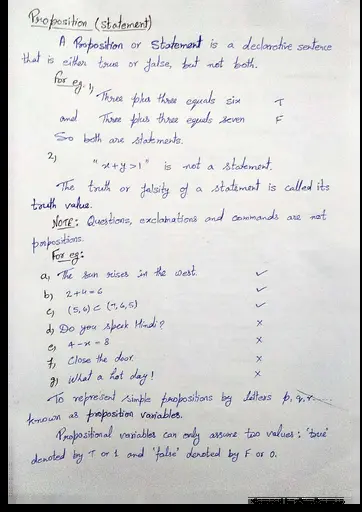 Proposition (statement)
A Proposition or Statement is a declarative sentence
that is either true or false, but not both.
For eg. 1)
Three plus three equals six T
and Three plus three equals seven F
So both are statements.
2)
"x+y>1" is not a statement.
The truth or falsity of a statement is called its
truth value.
NOTE: Questions, exclamations and commands are not
porpositions.
For eg:
a, The sun rises in the west. ✓
b) 2+4=6 ✓
c, (5,6) ⊂ (7,6,5) ✓
d) Do you speak Hindi? ×
e, 4-x=8 ×
f, Close the door ×
g) What a hot day! ×
To represent simple propositions by letters p, q, r...
known as proposition variables.
Propositional variables can only assume two values: 'true'
denoted by T or 1 and 'false' denoted by F or 0.